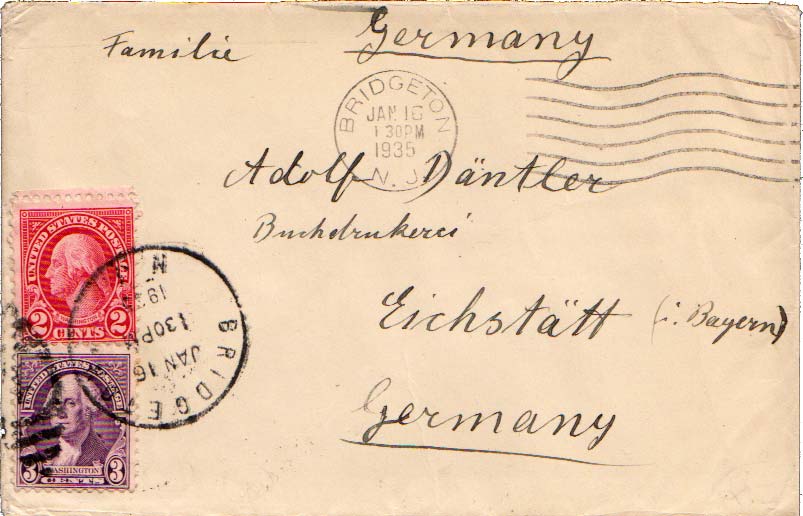 Germany
Familie
BRIDGETON
JAN 16
1 30PM
1935
N. J.
Adolf Däntler
Buchdrukerei
Eichstätt (i. Bayern)
Germany
UNITED STATES POSTAGE
WASHINGTON
2 CENTS 2
BRIDGET
JAN 16
1 30PM
N
UNITED STATES POSTAGE
WASHINGTON
3 CENTS 3